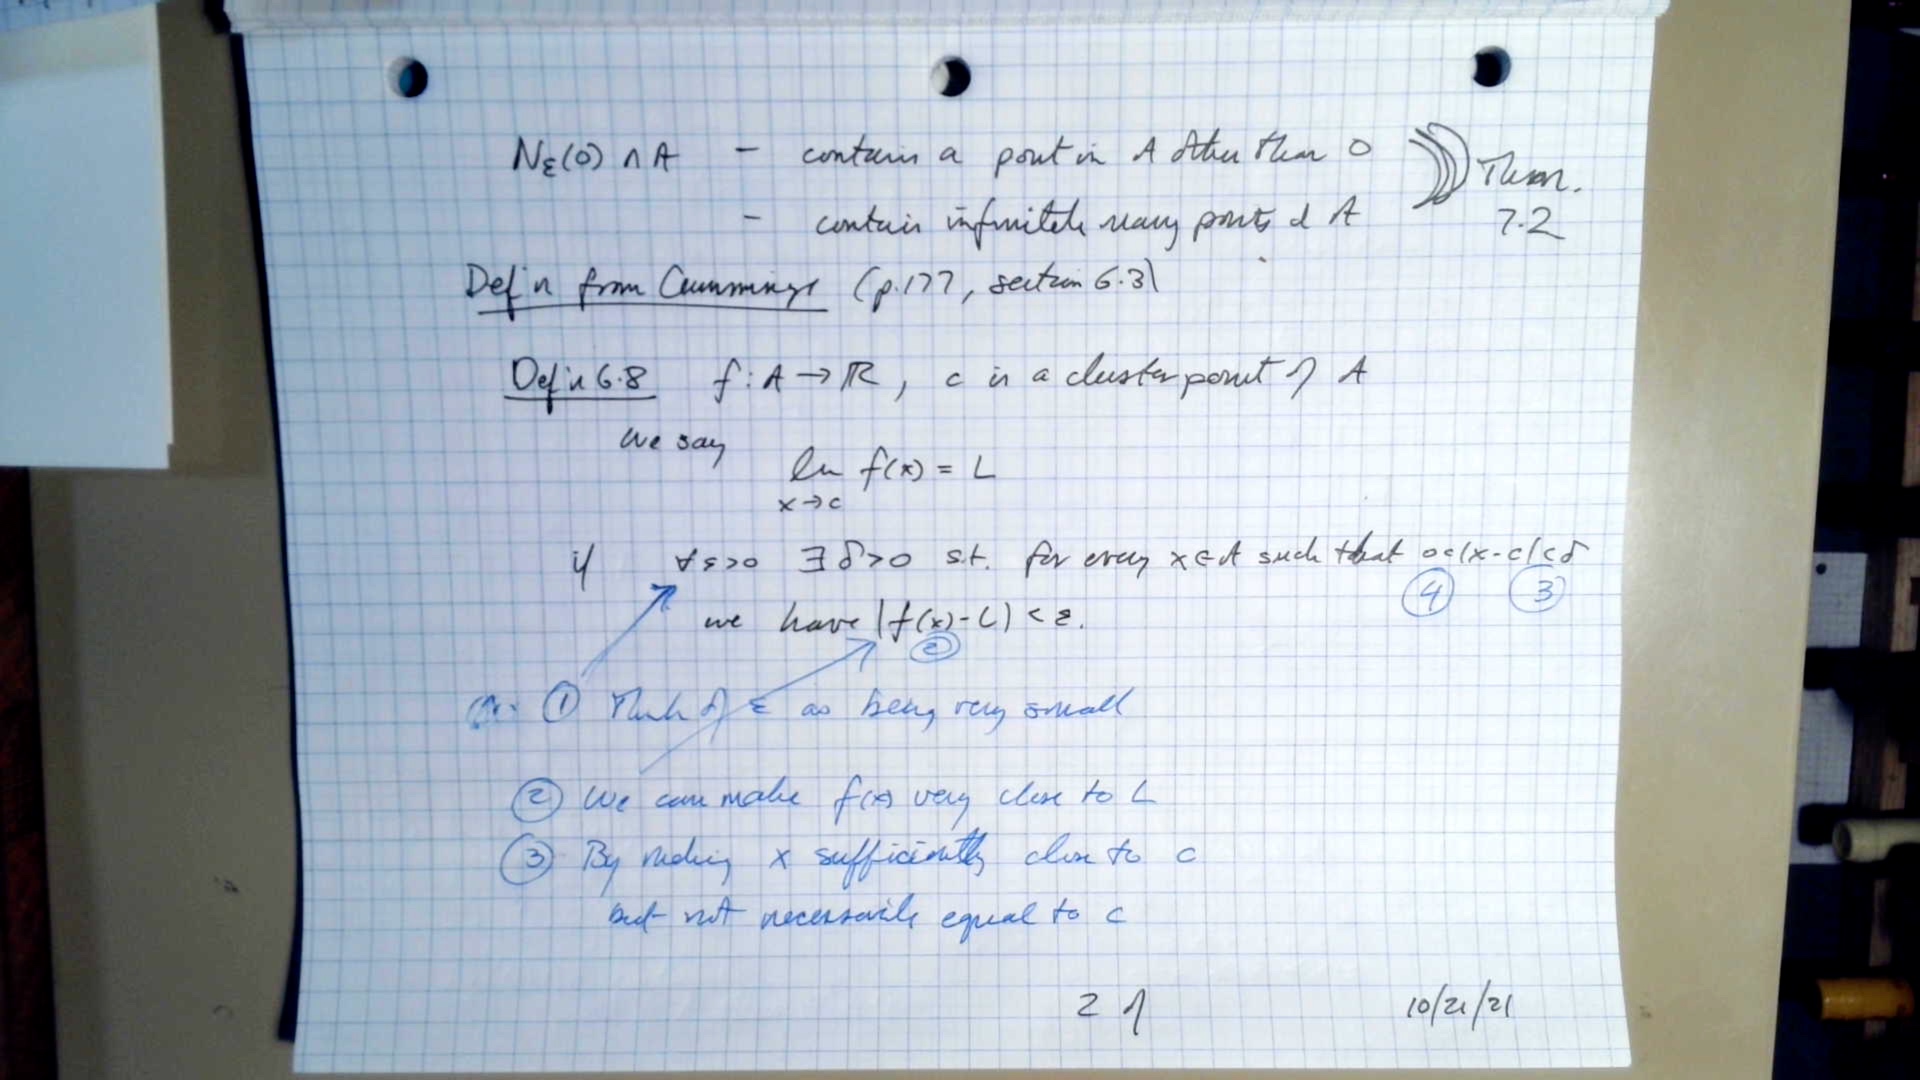 Nε(0) ∩ A - contains a point in A other than 0
- contain infinitely many points of A
Thm.
7.2
Def'n from Cummings (p.177, section 6.3)
Def'n 6.8 f: A → ℝ, c is a cluster point of A
We say
lim f(x) = L
x→c
if ∀ε>0 ∃δ>0 s.t. for every x∈A such that 0<|x-c|<δ
④ ③
we have |f(x)-L| < ε.
②
① Think of ε as being very small
② We can make f(x) very close to L
③ By making x sufficiently close to c
but not necessarily equal to c
2 of 10/21/21